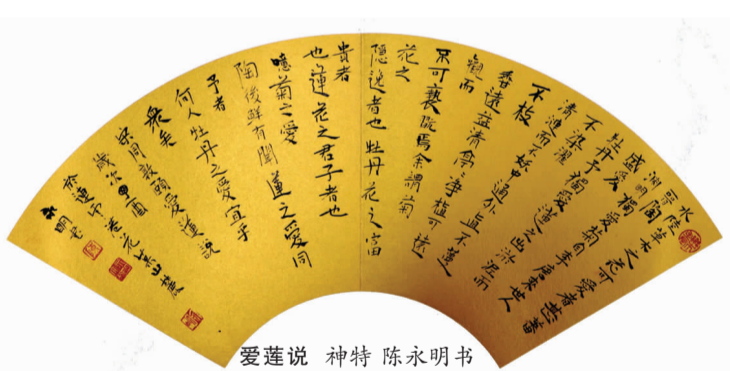 水陸草木之花可愛者甚蕃
晉陶
淵明獨愛菊自李唐來世人
盛愛
牡丹予獨愛蓮之出淤泥而
不染濯
清漣而不妖中通外直不蔓
不枝
香遠益清亭亭淨植可遠
觀而
不可褻玩焉余謂菊
花之
隱逸者也牡丹花之富
貴者
也蓮花之君子者也
噫菊之愛
陶後鮮有聞蓮之愛同
予者
何人牡丹之愛宜乎
眾矣
宋周敦頤愛蓮說
歲次酉
於連市花山麓
永明書
爱莲说 神特 陈永明书